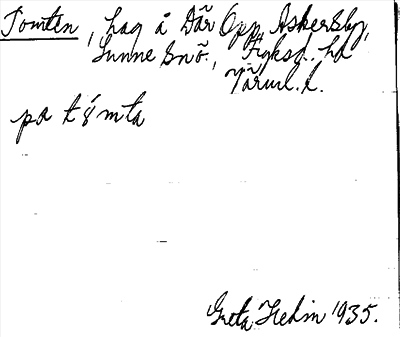 Tomten, hag å Där Opp Askersby,
Sunne Snö., Fryksd. hd
Värml. l.
pa týmta
Greta Hedin 1935.